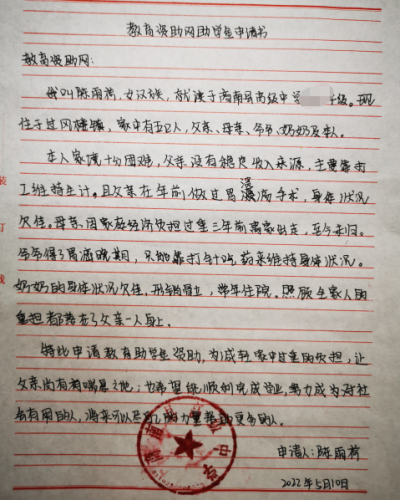 教育资助网助学生申请书
教育资助网:
我叫陈雨荷,女汉族,就读于商南县高级中学 年级。现
住于过风楼镇,家中有五口人,父亲、母亲、爷爷、奶奶及本人。
本人家境十分困难,父亲没有稳定收入来源,主要靠打
工维持生计。且父亲在年前做过胃溃疡手术,身体状况
欠佳。母亲因家庭经济负担过重三年前离家出走,至今未归。
爷爷得了胃癌晚期,只能靠打针吃药来维持身体状况。
奶奶的身体状况欠佳,形销骨立,常年住院。照顾全家人的
重担都落在了父亲一人身上。
特此申请教育助学生资助,为减轻家中过重的负担,让
父亲尚有喘息之地;也希望能顺如完成学业,努力成为对社
会有用的人,将来可以尽自己的力量帮助更多的人。
申请人:陈雨荷
2022年5月10日
装
订
线